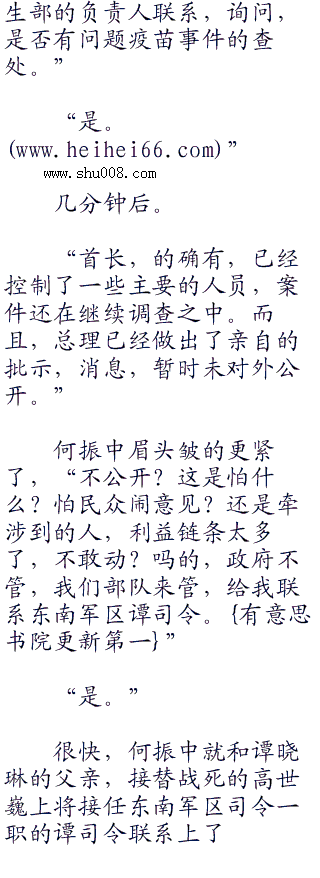 生部的负责人联系，询问，
是否有问题疫苗事件的查
处。”
“是。
(www.heihei66.com)”
www.shu008.com
几分钟后。
“首长，的确有，已经
控制了一些主要的人员，案
件还在继续调查之中。而
且，总理已经做出了亲自的
批示，消息，暂时未对外公
开。”
何振中眉头皱的更紧
了，“不公开？这是怕什
么？怕民众闹意见？还是牵
涉到的人，利益链条太多
了，不敢动？吗的，政府不
管，我们部队来管，给我联
系东南军区谭司令。{有意思
书院更新第一}”
“是。”
很快，何振中就和谭晓
琳的父亲，接替战死的高世
巍上将接任东南军区司令一
职的谭司令联系上了